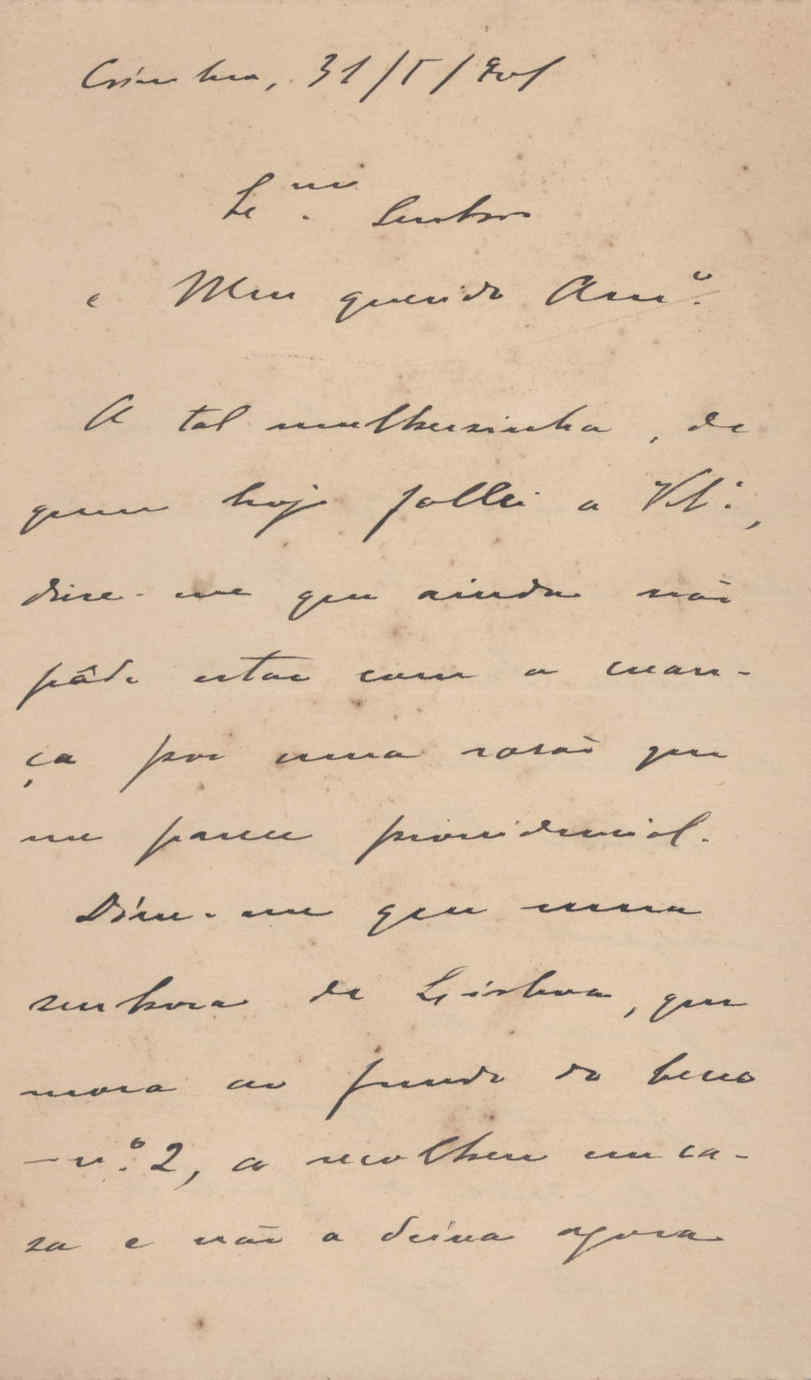 Coimbra, 31/5/901
Ex.mo Senhor
e Meu querido Am.o
A tal mulhersinha, de
quem hoje fallei a V. Ex.a,
disse-me que ainda não
pôde estar com a crean-
ça por uma rasão que
me parece providencial.
Disse-me que uma
senhora de Lisboa, que
mora ao fundo do beco
— n.o 2, a recolheu em ca-
sa e não a deixa agora